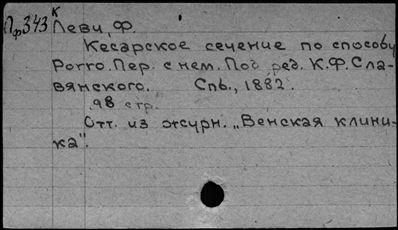 К
Пф343 Леви, Ф.
Кесарское сечение по способу
Porro. Пер. с нем. Под ред. К.Ф. Сла-
вянского. Спб., 1882.
98 стр.
Отт. из журн. „Венская клини-
ка".